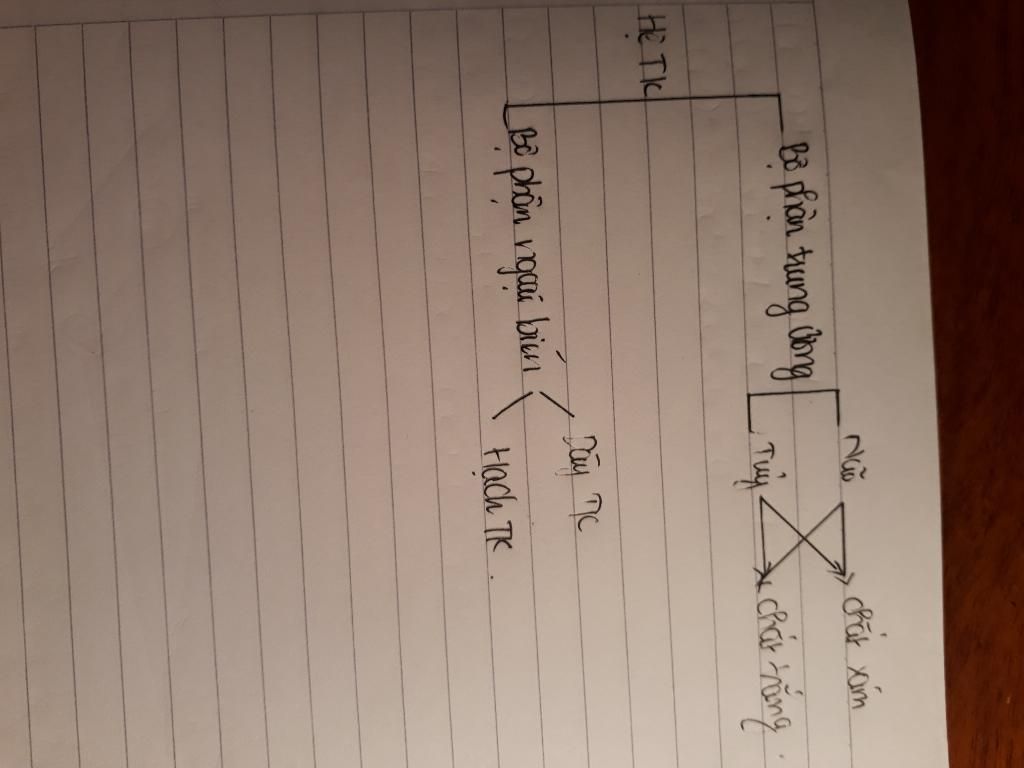 Hệ TK
Bộ phận trung ương
Não
chất xám
Tủy
chất trắng.
Bộ phận ngoại biên
Dây TK
Hạch TK.